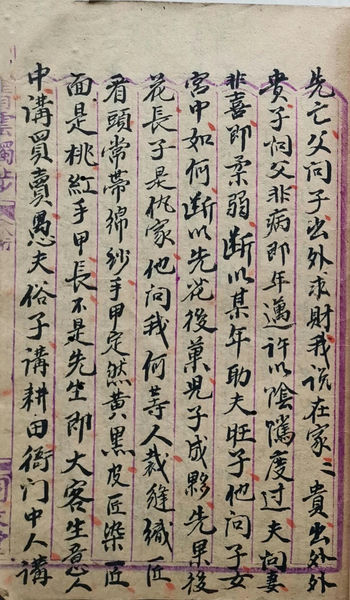 先亡父问子出外求財我说在家三貴出外外
貴子问父非病即年邁许以陰隲度过夫问妻
非喜即柔弱断以某年助夫旺子他问子女
宮中如何断以先花後菓児子成夥先果後
花長子是仇家他问我何等人裁縫織匠
看頭常帯綿紗手甲定然黄黒皮匠染匠
面是桃紅手甲長不是先生即大客生意人
中講買賣愚夫俗子講耕田衙门中人講
雲獨步